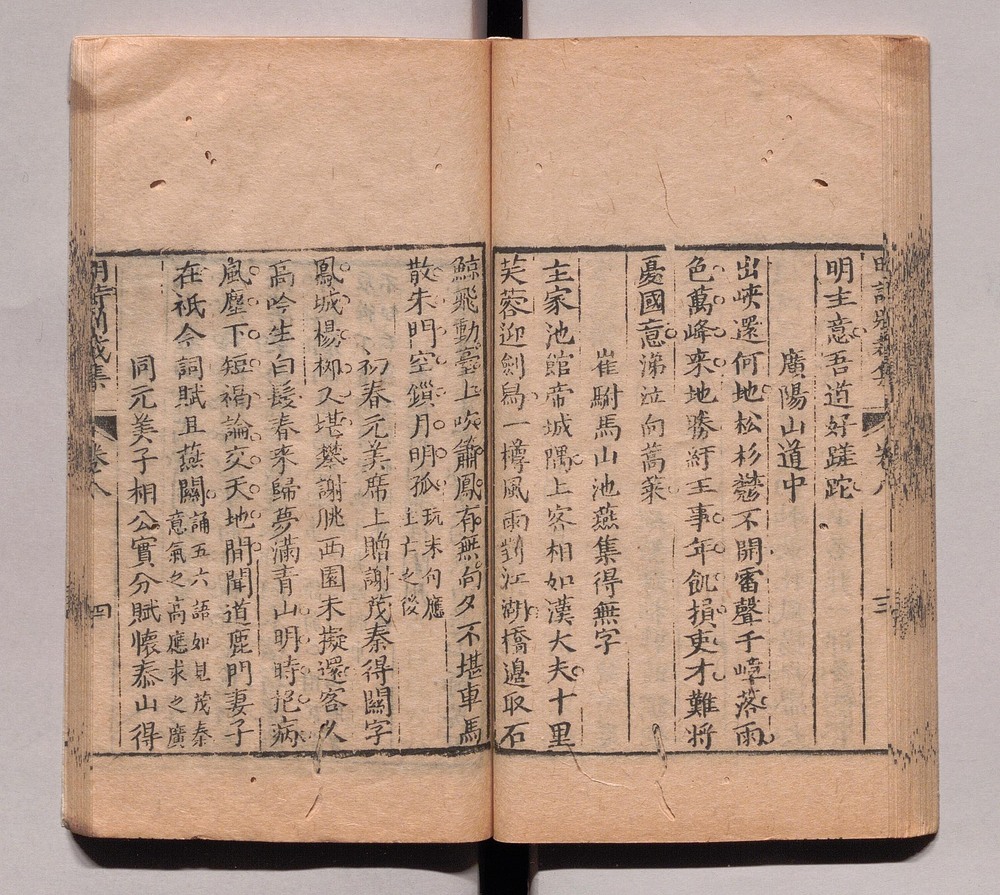 明詩別裁集 卷八 三
明主意吾道好蹉跎
廣陽山道中
出峽還何地松杉鬱不開雷聲千嶂落雨
色萬峰來地勝紆王事年飢損吏才難將
憂國意涕泣向蒿萊
崔駙馬山池燕集得無字
主家池館帝城隅上客相如漢大夫十里
芙蓉迎劍舄一樽風雨對江湖橋邊取石
鯨飛動臺上吹簫鳳有無向夕不堪車馬
散朱門空鎖月明孤
玩末句應
主亡之後
初春元美席上贈謝茂秦得關字
鳳城楊柳又堪攀謝朓西園未擬還客久
高吟生白髮春來歸夢滿青山明時抱病
風塵下短褐論交天地間聞道鹿門妻子
在祇今詞賦且燕關
誦五六語如見茂秦
意氣之高應求之廣
同元美子相公實分賦懷泰山得
明詩別裁集 卷八 四